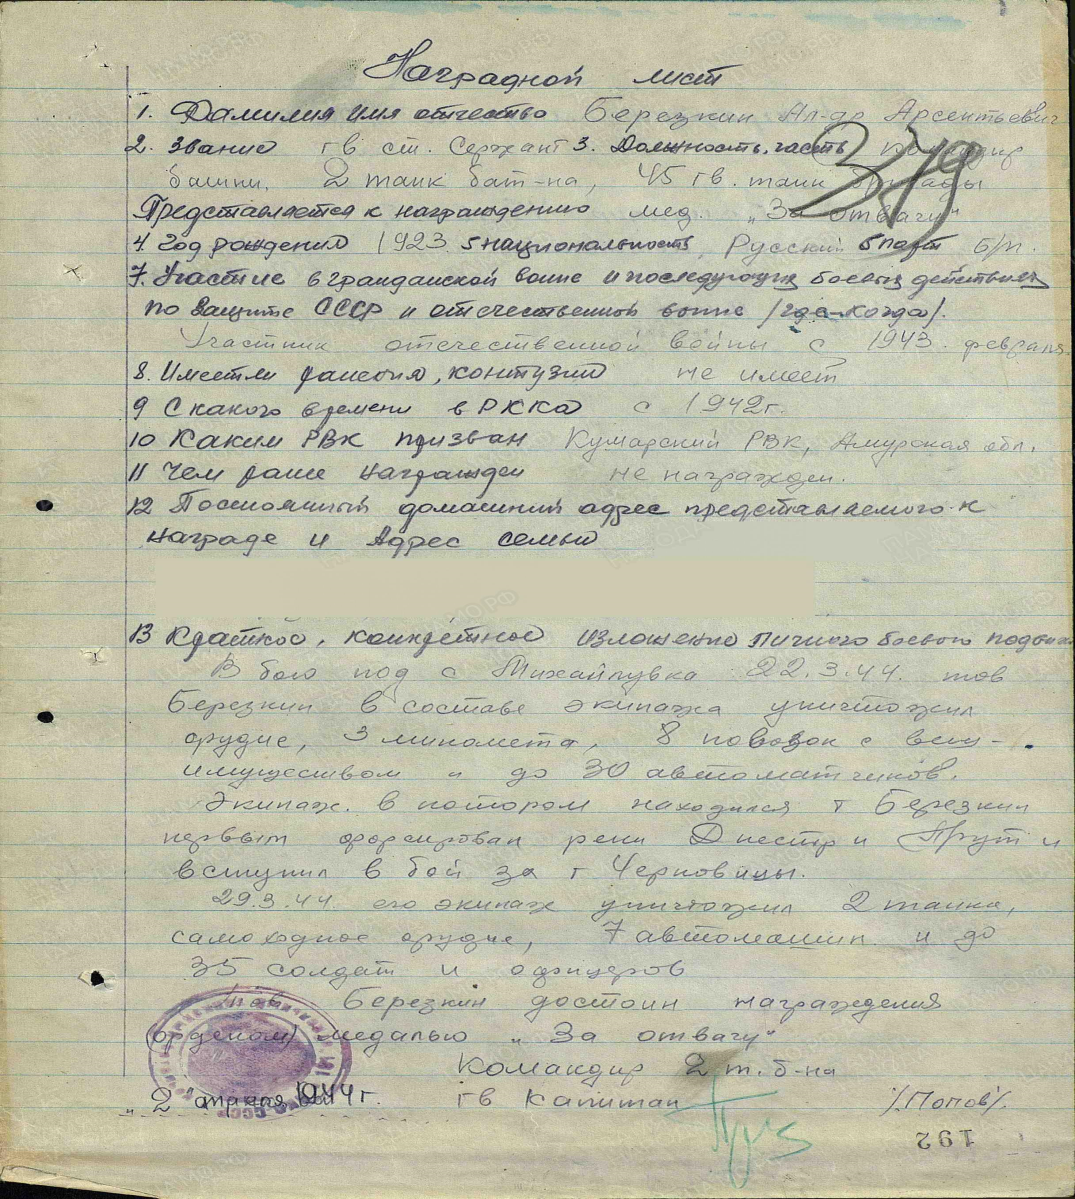 Наградной лист
1. Фамилия имя отчество Березкин Ал-др Арсентьевич
2. Звание гв ст. Сержант 3. Должность, часть командир
башни, 2 танк бат-на, 45 гв. танк бригады
Представляется к награждению мед. „За отвагу"
4. Год рождения 1923 5 национальность, Русский 6 парт б/п.
7. Участие в гражданской войне и последующих боевых действиях
по защите СССР и отечественной войне /где-когда/.
Участник отечественной войны с 1943. февраля.
8. Имеет ли ранения, контузии не имеет
9 С какого времени в РККА с 1942г.
10 Каким РВК призван Кумарский РВК, Амурская обл.
11 Чем ранее награжден не награжден.
12 Постоянный домашний адрес представляемого к
награде и Адрес семьи
13 Краткое, конкретное изложение личного боевого подвига
В бою под с Михайлувка 22.3.44. тов
Березкин в составе экипажа уничтожил
орудие, 3 миномета, 8 повозок с воен-
имуществом и до 30 автоматчиков.
Экипаж. в котором находился т Березкин
первым форсировал реки Днестр и Прут и
вступил в бой за г Черновицы.
29.3.44. его экипаж уничтожил 2 танка,
самоходное орудие, 7 автомашин и до
35 солдат и офицеров
Тов Березкин достоин награждения
(орденом) медалью „За отвагу"
Командир 2 т. б-на
„2" апреля 1944г. гв Капитан /Попов/.
319
192